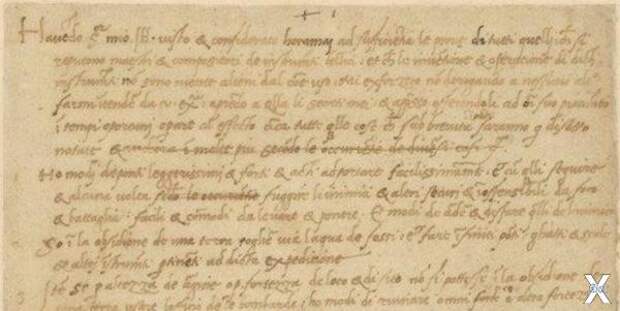 Havẽdo S.re mio Ill. visto & considerato horamai ad sufficientia le prove di tutti quelli che si
reputono maestri & compositori de instrumenti bellici et che le inventione & operatione di dicti
instrumenti nõ sono niente alieni dal cõe uso mi exforzero nõ derogando a nessuno altro
farmi intender da v. ex. aprẽdo a quella li secreti mei & appresso offerendoli ad oi suo piacimẽto
i tempi oportuni operare cũ effecto circa tutte quelle cose che sub brevita saranno qui disotto
notate & secõdo le occurrẽtie de diversi casi
Ho modi de ponti leggerissimi & forti & acti ad portare facilissimamẽte et cũ quelli seguire
& alcuna volta fuggire li inimici & altri securi & inoffensibili da foco
& battaglia facili & cõmodi da levare & ponere Et modi de ardere & disfare quelli de linimico
So ĩ la obsidione de una terra toglier via laqua de fossi et fare ĩfiniti põti ghatti & scale
& altri ĩstrumẽti ptinẽti ad dicta expeditione
Itẽ se p altezza de argine o p fortezza de loco & di sito nõ si potesse ĩ la obsidione de
una terra usare lofficio de le bombarde ho modi di ruinare omni forte altra fortezza